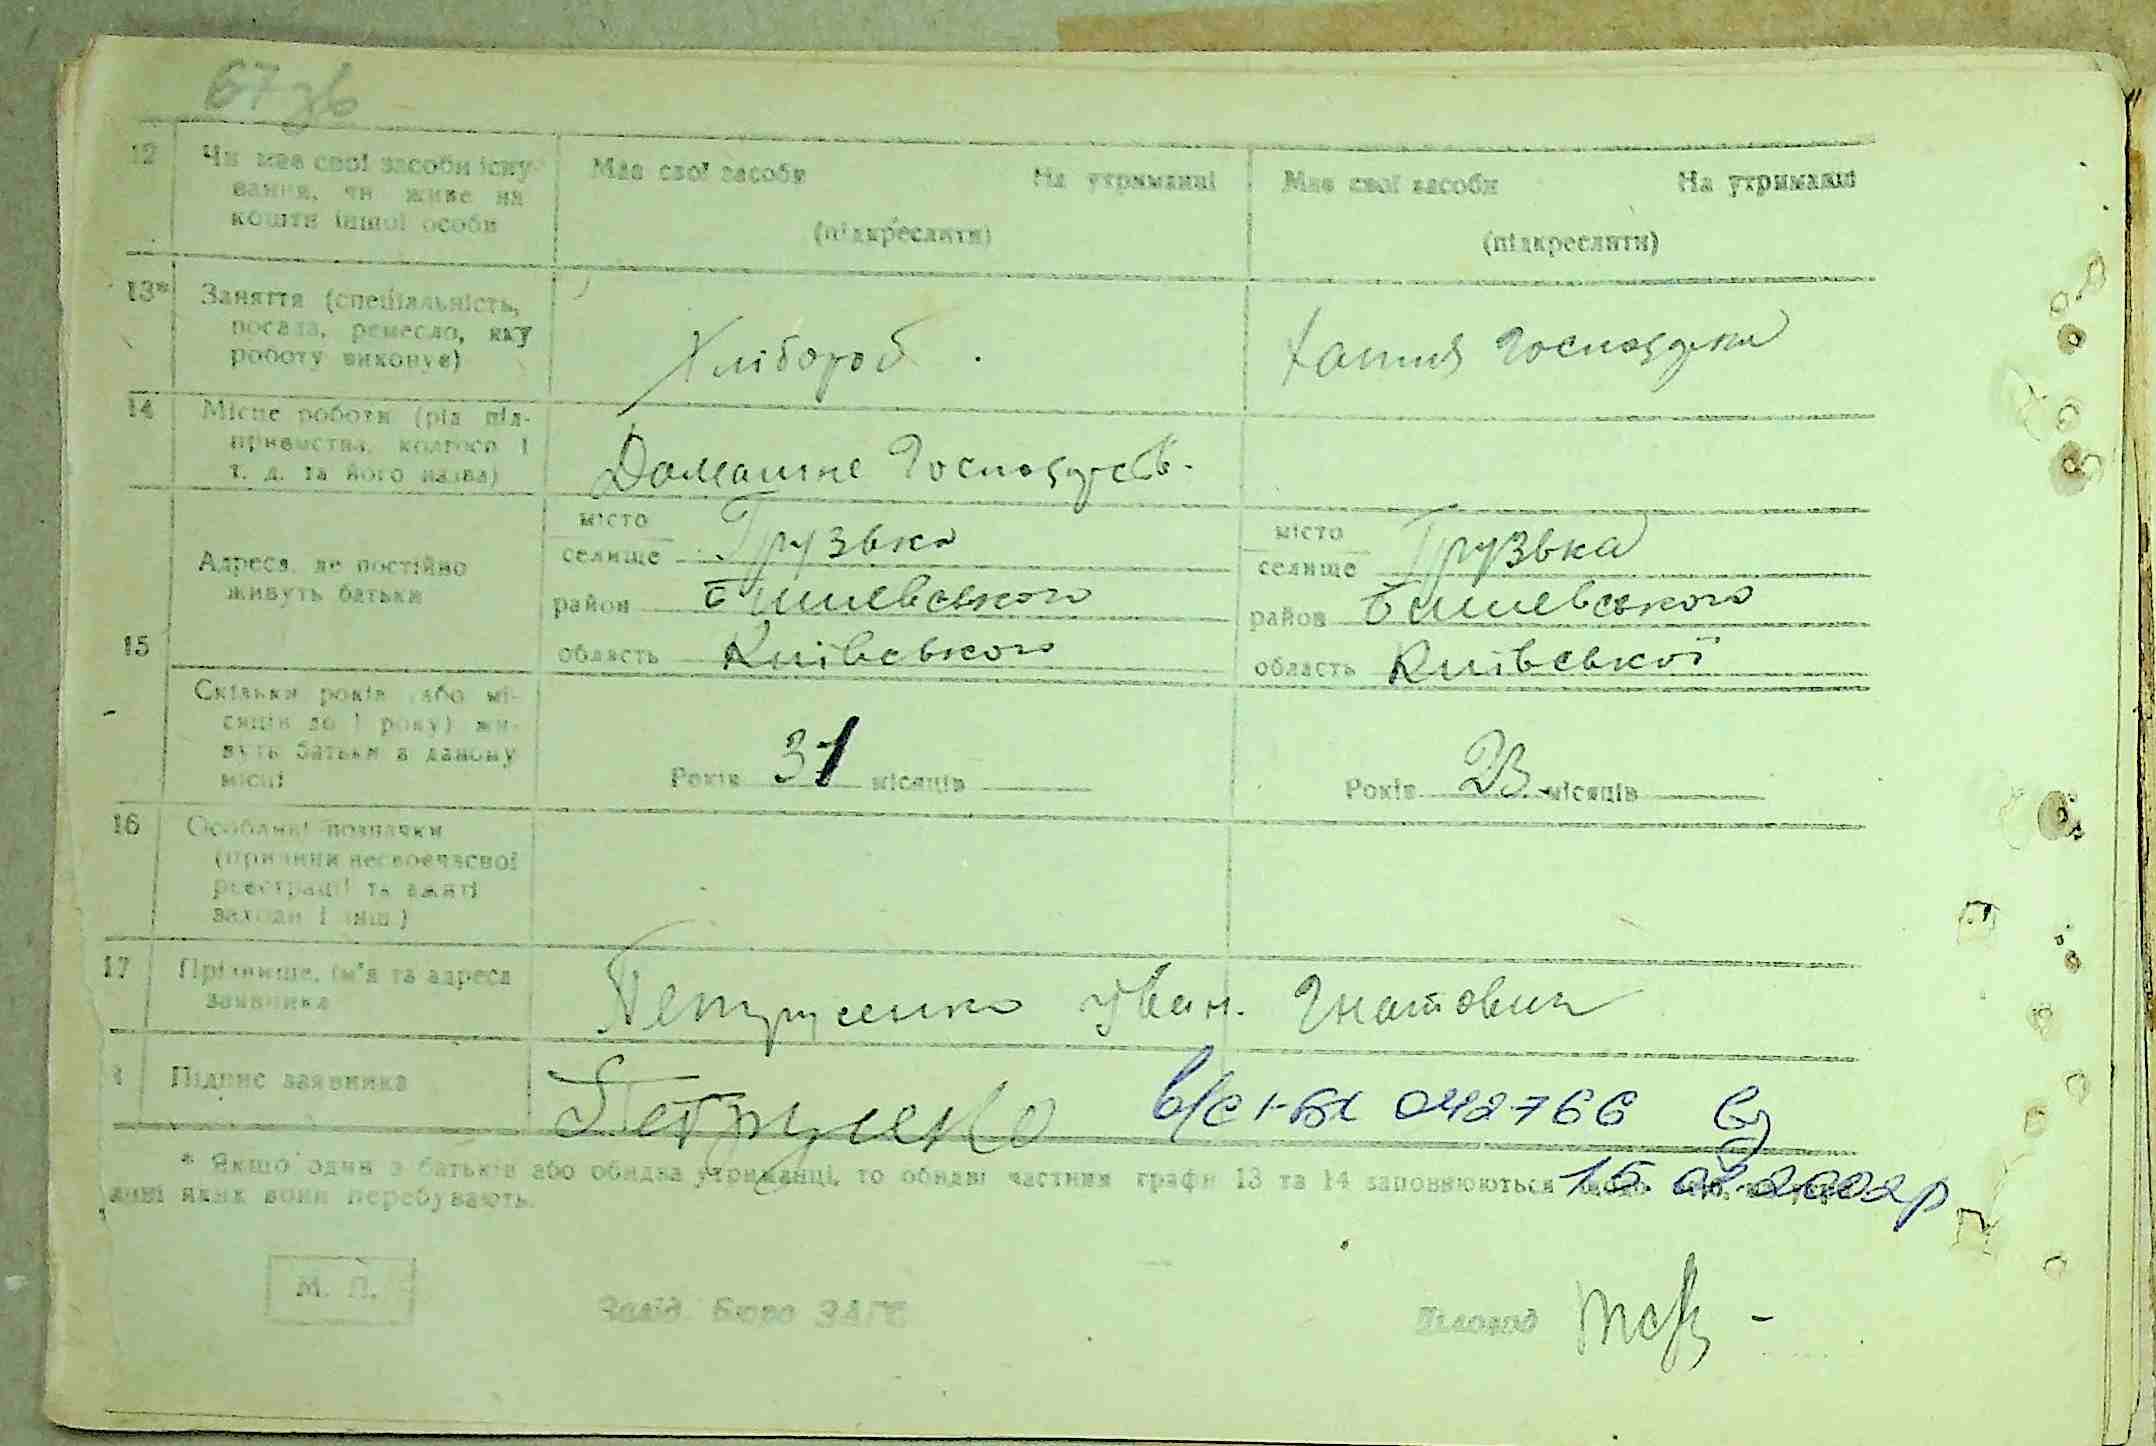 67 зв
12 Чи має свої засоби існу- Має свої засоби На утриманні Має свої засоби На утриманні
вання, чи живе на
кошти іншої особи (підкреслити) (підкреслити)
13* Заняття (спеціальність,
посада, ремесло, яку Хлібороб Хатня господарка
роботу виконує)
14 Місце роботи (рід під-
приємства, колгосп і Домашнє господарств.
т. д. та його назва)
15 Адреса, де постійно
живуть батьки
місто
селище Грузька
район Бишевського
область Київського
місто
селище Грузька
район Бишевського
область Київської
Скільки років (або мі-
сяців до 1 року) жи-
вуть батьки в даному
місці
Років 31 місяців
Років 23 місяців
16 Особливі позначки
(причини несвоєчасної
реєстрації та вжиті
заходи і інш.)
17 Прізвище, ім'я та адреса Петрусенко Іван Гнатович
заявника
Підпис заявника Петрусенко в/с І-БК 042766
* Якщо один з батьків або обидва утриманці, то обидві частини графи 13 та 14 заповнюються 15.02.2002р
анні яких вони перебувають.
М. П. Завід. Бюро ЗАГС Діловод